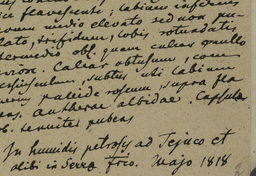 labium inferius
medio elevato sed non pun-
ctato, trifidum, lobis rotundatis
intermedio obl. quam calcar paullo
Calcar obtusum, com-
subtus uti labium
pallide roseum, supra fla-
Antherae albidae. Capsula
tenuiter pubens
In humidis petrosis ad Tejuco et
alibi in Serra Frio. Majo 1818